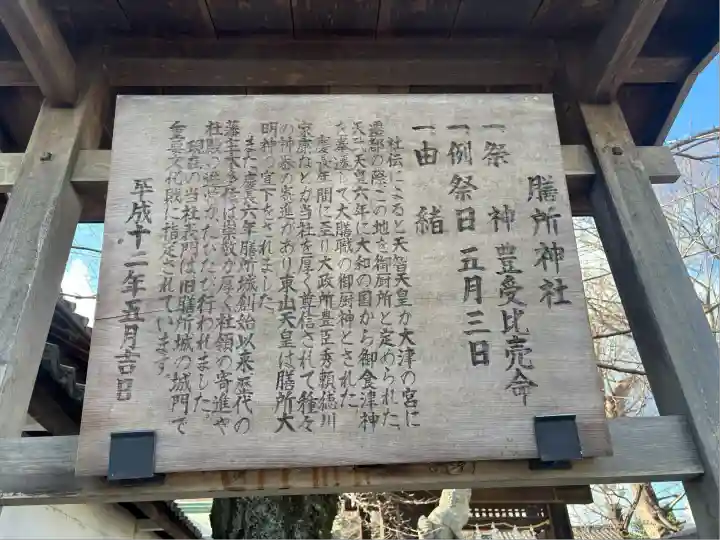 膳所神社
一祭　神　豊受比売命
一例祭日　五月三日
一由　緒
社伝によると天智天皇が大津の宮に
遷都の際この地を御厨所と定められた、
天武天皇六年に大和の国から御食津神
を奉遷して大膳職の御厨神とされた、
慶長年間に至り大政所豊臣秀頼徳川
家康などが当社を厚く尊信されて種々
の神器の寄進があり東山天皇は膳所大
明神の宣下をされました。
また慶長六年膳所城創始以来歴代の
藩主本多氏は崇敬が厚く社領の寄進や
社殿の造営がたびたび行われました。
現在の当社表門は旧膳所城の城門で
重要文化財に指定されています。
平成十二年五月吉日